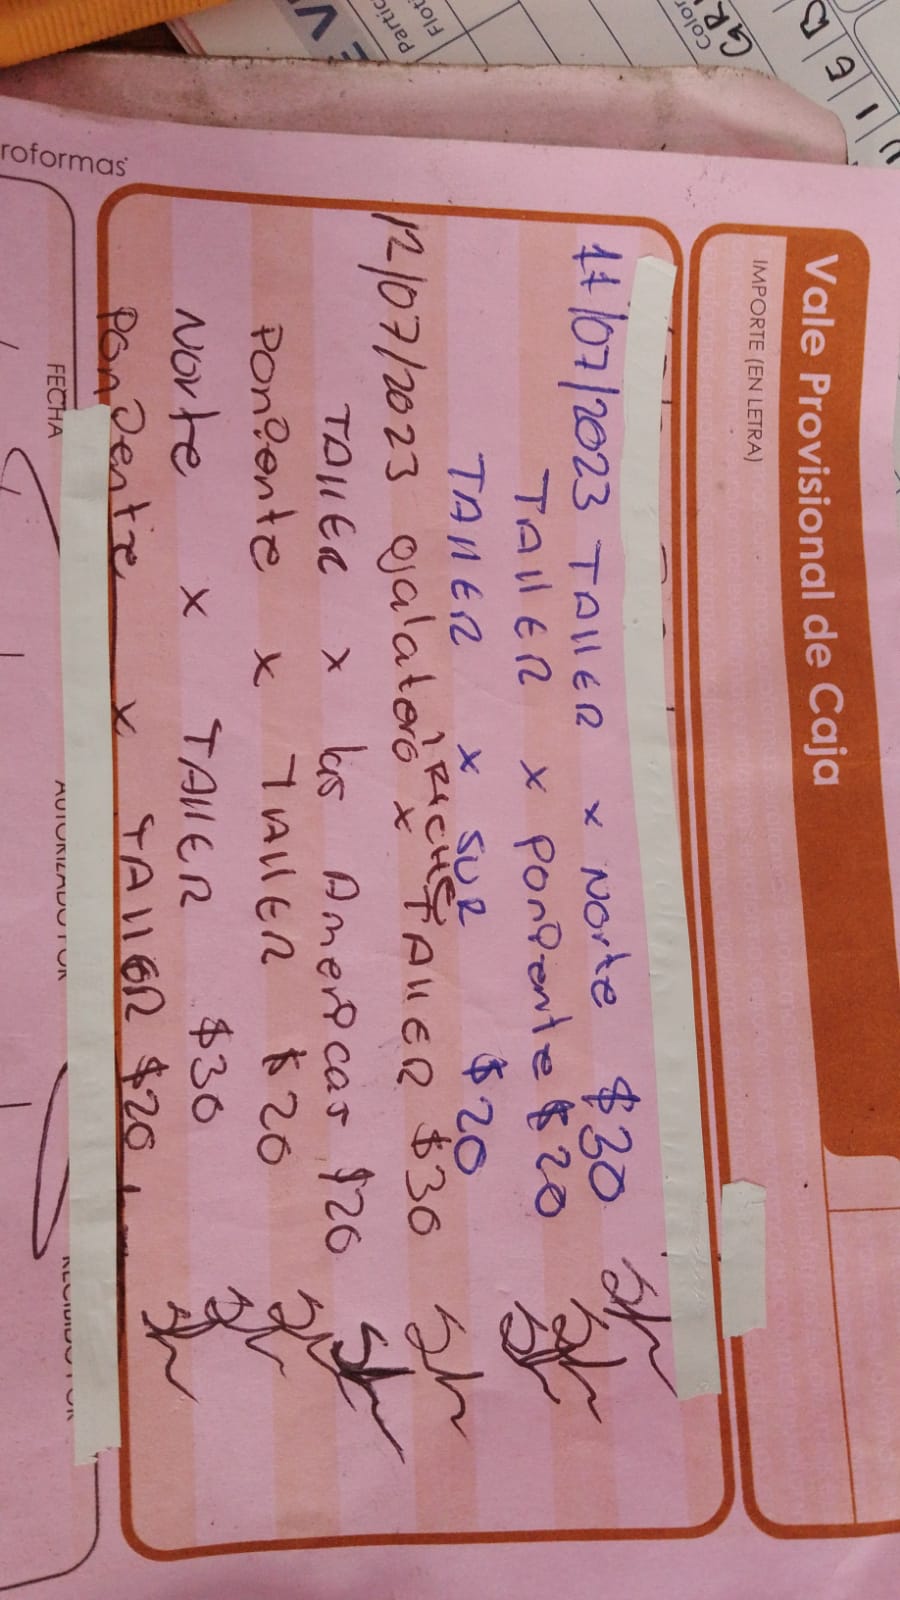 Vale Provisional de Caja
IMPORTE (EN LETRA)
11/07/2023 TALLER x Norte $30
TALLER x Poniente $20
TALLER x SUR $20
TRICHE
12/07/2023 ojalatero x TALLER $30
TALLER x las Americas $20
Poniente x TALLER $20
Norte x TALLER $30
Poniente x TALLER $20
FECHA
AUTORIZADO POR
RECIBIDO POR
roformas
Color
GR
Flot
Partic